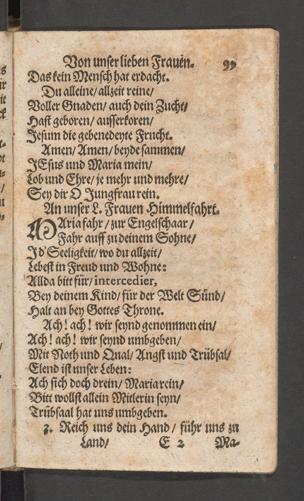 Von unser lieben Frauen. 99
Das kein Mensch hat erdacht.
Du alleine/ allzeit reine/
Voller Gnaden/ auch dein Zucht/
Hast geboren/ ausserkoren/
Jesum die gebenedeyte Frucht.
Amen/ Amen/ beyde sammen/
JEsus und Maria mein/
Lob und Ehre/ je mehr und mehre/
Sey dir O Jungfrau rein.
An unser L. Frauen Himmelfahrt.
MAria fahr/ zur Engelschaar/
Fahr auff zu deinem Sohne/
In d' Seeligkeit/ wo du allzeit/
Lebest in Freud und Wohne:
Allda bitt für/ intercedier,
Bey deinem Kind/ für der Welt Sünd/
Halt an bey Gottes Throne.
Ach! ach! wir seynd genommen ein/
Ach! ach! wir seynd umbgeben/
Mit Noth und Qual/ Angst und Trübsal/
Elend ist unser Leben:
Ach sich doch drein/ Maria rein/
Bitt wollst allein Mitlerin seyn/
Trübsaal hat uns umbgeben.
3. Reich uns dein Hand/ führ uns zu
Land/ E 2 Ma-